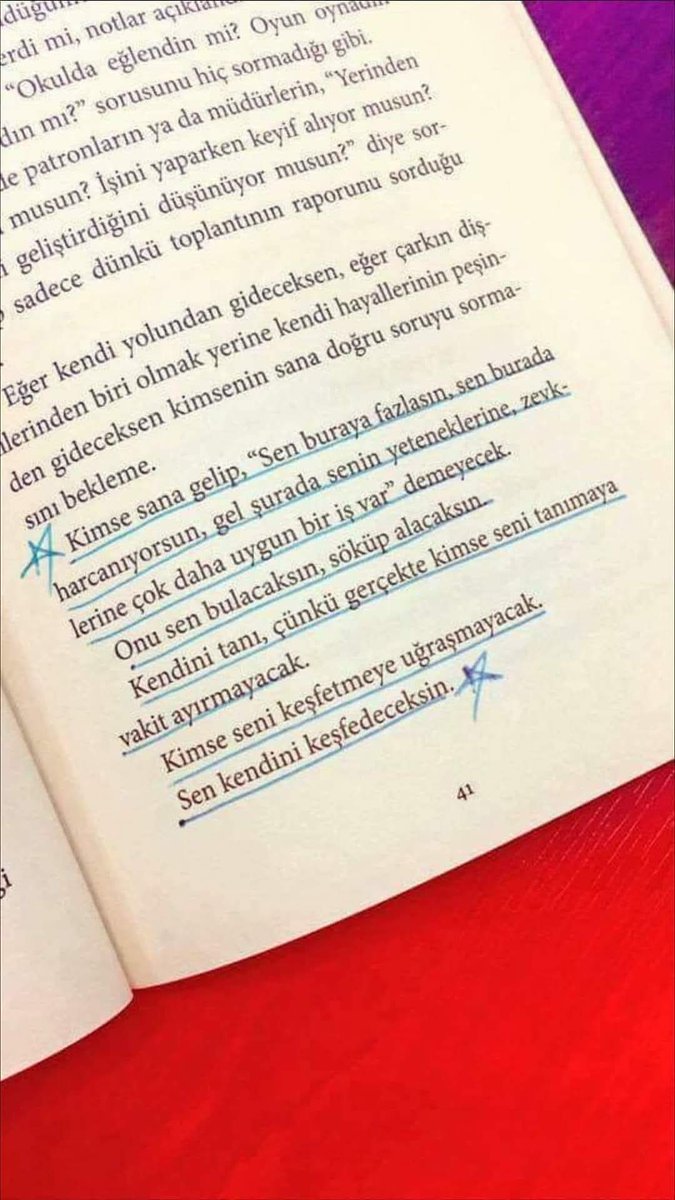 erdi mi, notlar açıkland
"Okulda eğlendin mi? Oyun oynadın
dın mı?" sorusunu hiç sormadığı gibi.
de patronların ya da müdürlerin, "Yerinden
musun? İşini yaparken keyif alıyor musun?
geliştirdiğini düşünüyor musun?" diye sor-
sadece dünkü toplantının raporunu sorduğu
Eğer kendi yolundan gideceksen, eğer çarkın diş-
lerinden biri olmak yerine kendi hayallerinin peşin-
den gideceksen kimsenin sana doğru soruyu sorma-
sını bekleme.
Kimse sana gelip, "Sen buraya fazlasın, sen burada
harcanıyorsun, gel şurada senin yeteneklerine, zevk-
lerine çok daha uygun bir iş var" demeyecek.
Onu sen bulacaksın, söküp alacaksın.
Kendini tanı, çünkü gerçekte kimse seni tanımaya
vakit ayırmayacak.
Kimse seni keşfetmeye uğraşmayacak.
Sen kendini keşfedeceksin.
41